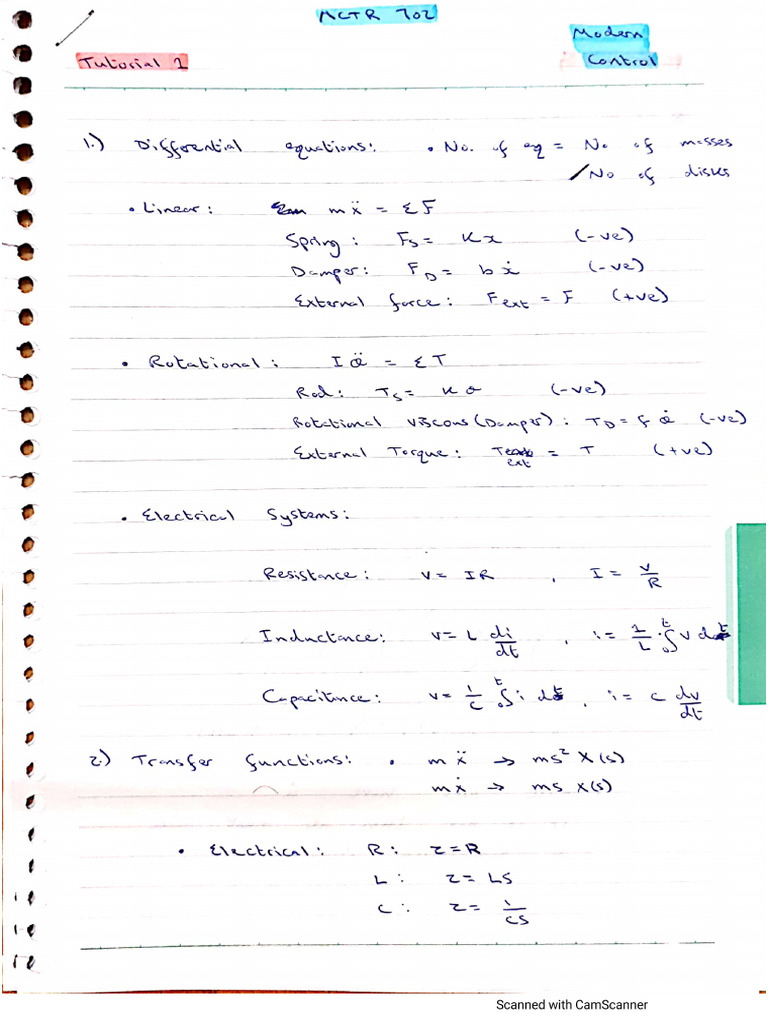 MCTR 702
Modern
Tutorial 1 Control
1.) Differential equations: • No. of eq = No of masses
/ No of disks
• Linear: mẍ = ΣF
Spring: Fs = Kx (-ve)
Damper: FD = bẋ (-ve)
External force: Fext = F (+ve)
• Rotational: Iӫ = ΣT
Rod: Ts = Kθ (-ve)
Rotational Viscous (Damper): TD = f θ̇ (-ve)
External Torque: Text = T (+ve)
• Electrical Systems:
Resistance: V = IR , I = V/R
Inductance: V = L di/dt , i = 1/L ₀∫ᵗ v dt
Capacitance: V = 1/C ₀∫ᵗ i dt , i = C dv/dt
2.) Transfer functions: • mẍ → ms² X(s)
mẋ → ms X(s)
• Electrical: R: Z = R
L: Z = LS
C: Z = 1/CS
Scanned with CamScanner